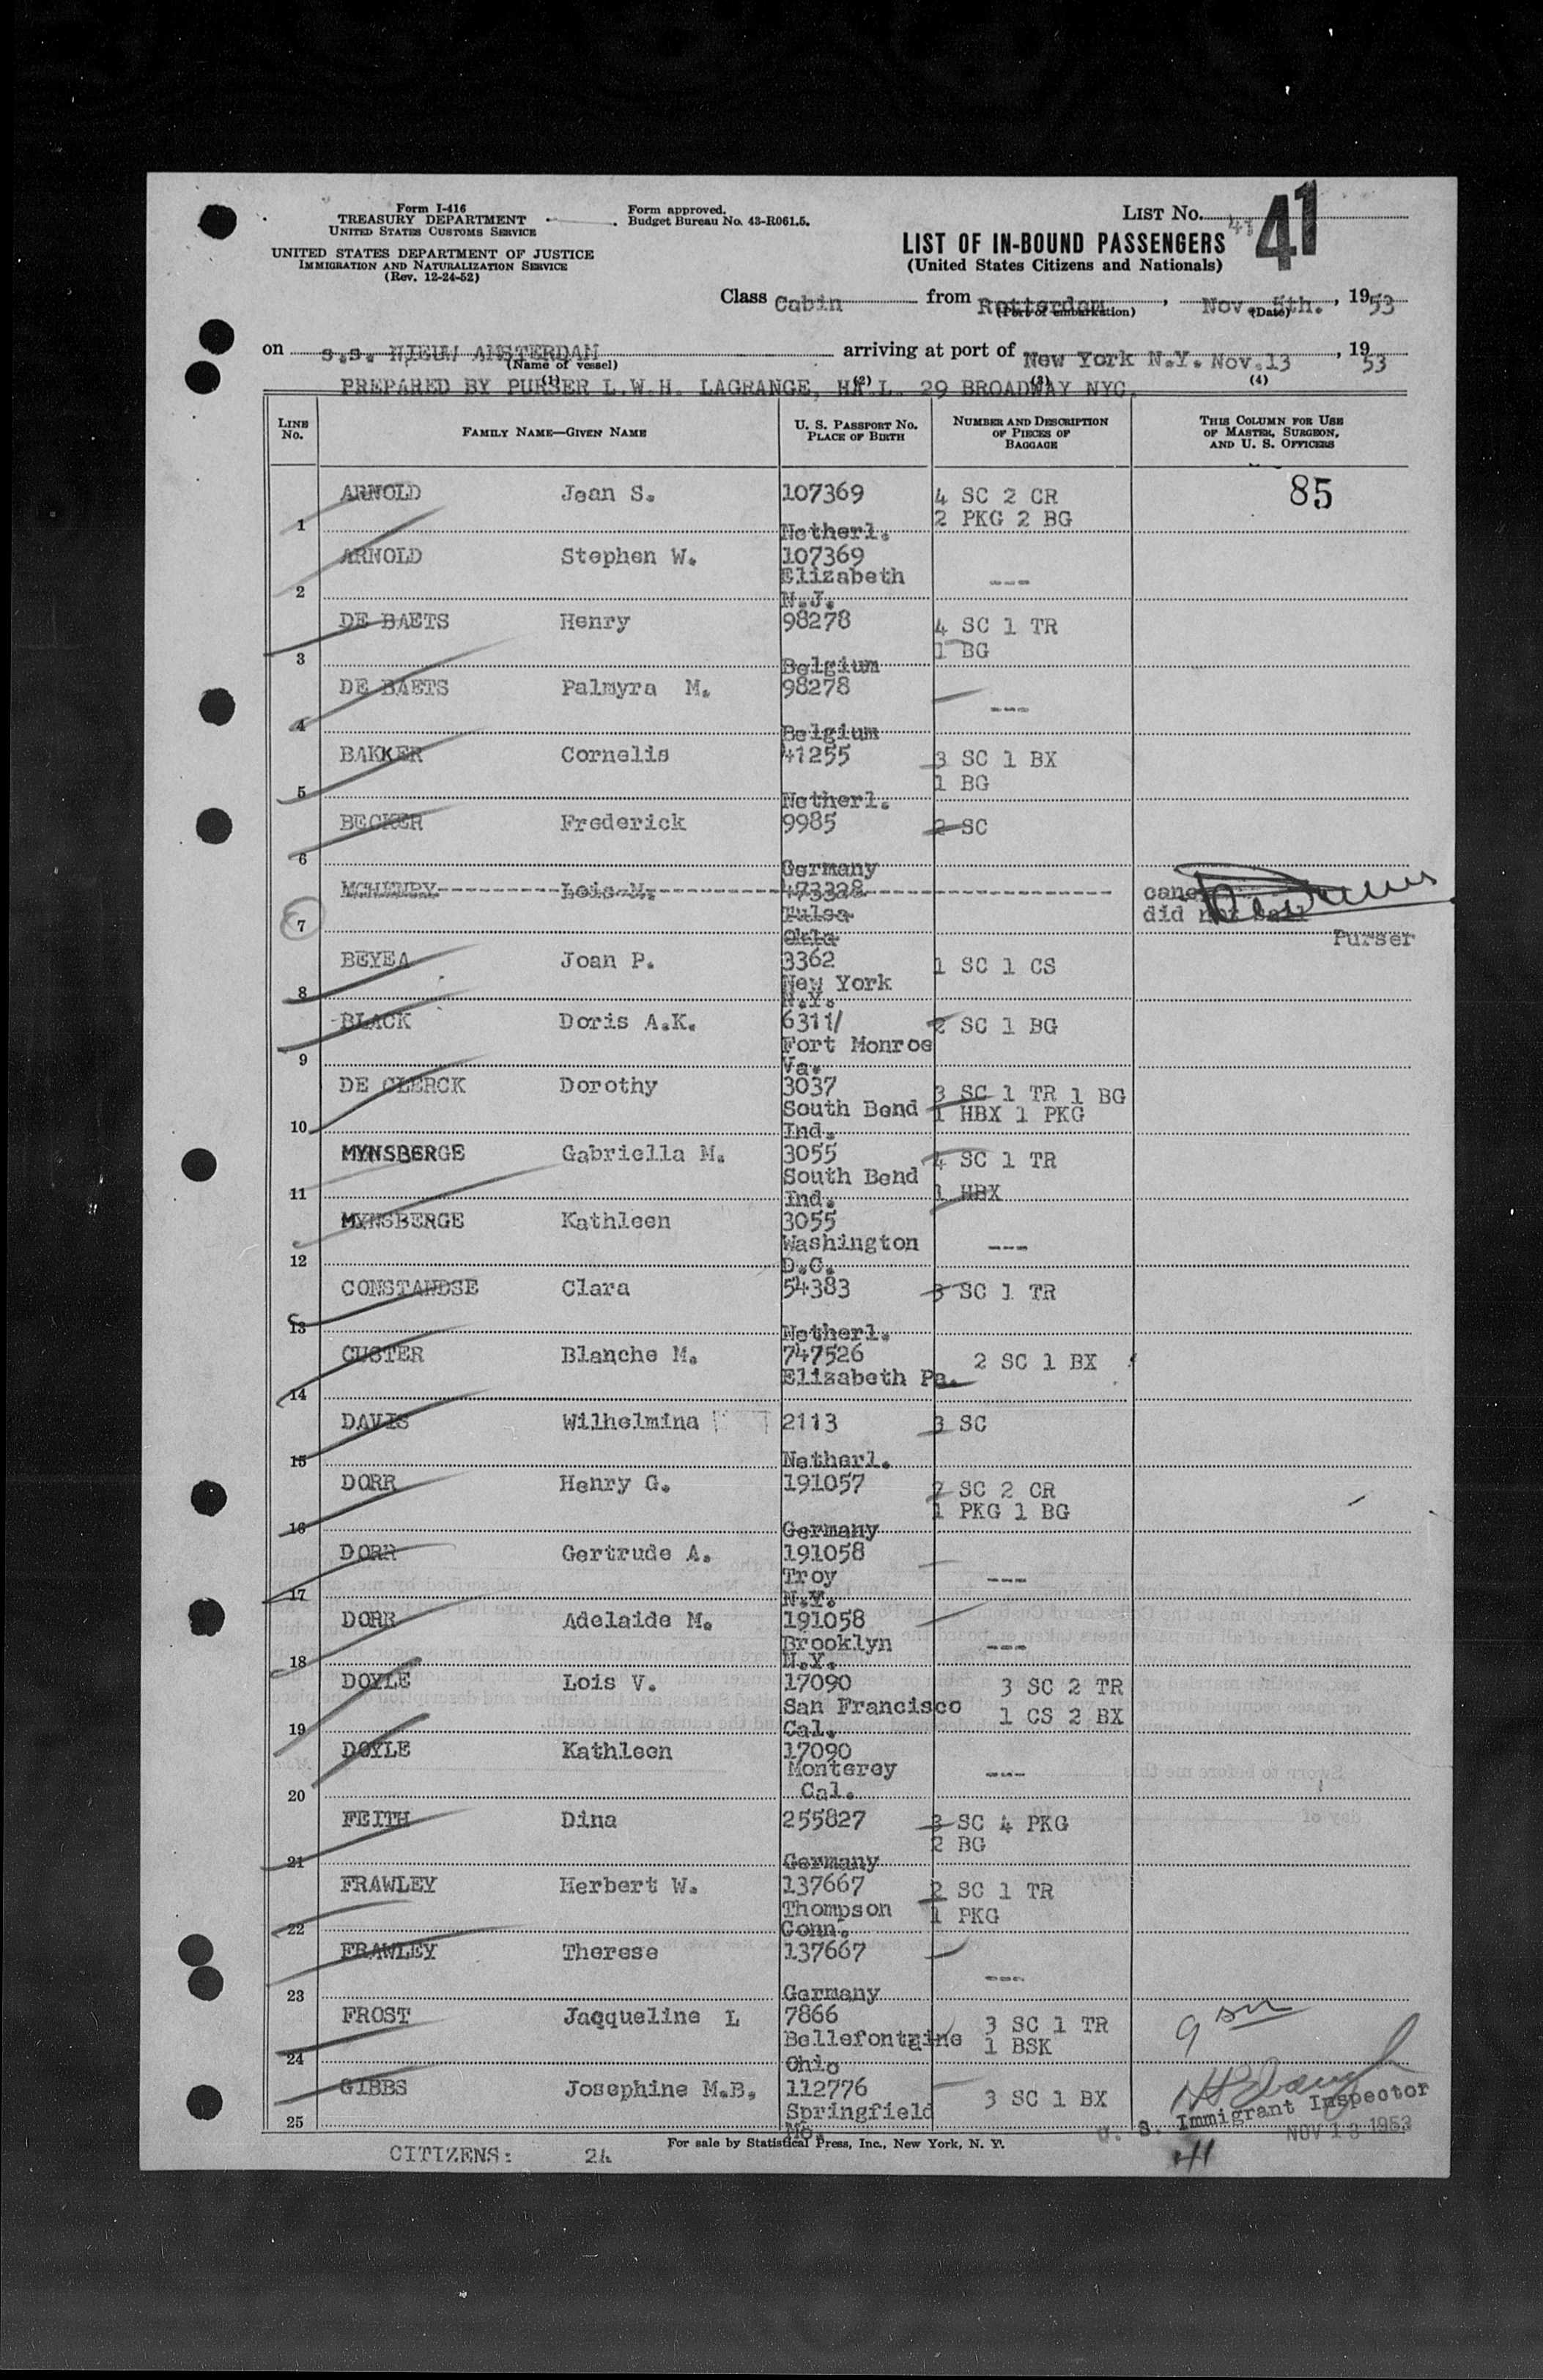 Form I-416
TREASURY DEPARTMENT
UNITED STATES CUSTOMS SERVICE
UNITED STATES DEPARTMENT OF JUSTICE
IMMIGRATION AND NATURALIZATION SERVICE
(Rev. 12-24-52)
Form approved.
Budget Bureau No. 43-R061.5.
LIST No. 41
LIST OF IN-BOUND PASSENGERS
(United States Citizens and Nationals)
Class Cabin from Rotterdam, Nov. 5th., 1953
(Port of embarkation) (Date)
on s.s. NIEUW AMSTERDAM arriving at port of New York N.Y. Nov.13, 1953
(Name of vessel)
PREPARED BY PURSER L.W.H. LAGRANGE, HA L. 29 BROADWAY NYC.
(1) (2) (3) (4)
LINE No. FAMILY NAME—GIVEN NAME U. S. PASSPORT No. PLACE OF BIRTH NUMBER AND DESCRIPTION OF PIECES OF BAGGAGE THIS COLUMN FOR USE OF MASTER, SURGEON, AND U. S. OFFICERS
ARNOLD Jean S. 107369 4 SC 2 CR 85
2 PKG 2 BG
1 Netherl.
ARNOLD Stephen W. 107369
Elizabeth ---
2 N.J.
DE BAETS Henry 98278 4 SC 1 TR
1 BG
3 Belgium
DE BAETS Palmyra M. 98278
---
4 Belgium
BAKKER Cornelis 41255 3 SC 1 BX
1 BG
5 Netherl.
BECKER Frederick 9985 2 SC
6 Germany
MCHENRY Lois M. 473328
Tulsa did not sail
7 Okla Purser
BEYEA Joan P. 3362 1 SC 1 CS
New York
8 N.Y.
BLACK Doris A.K. 6311/ 2 SC 1 BG
Fort Monroe
9 Va.
DE CLERCK Dorothy 3037 3 SC 1 TR 1 BG
South Bend 1 HBX 1 PKG
10 Ind.
MYNSBERGE Gabriella M. 3055 4 SC 1 TR
South Bend
11 Ind. 1 HBX
MYNSBERGE Kathleen 3055
Washington ---
12 D.C.
CONSTANDSE Clara 54383 3 SC 1 TR
13 Netherl.
CUSTER Blanche M. 747526 2 SC 1 BX
Elizabeth Pa.
14
DAVIS Wilhelmina 2113 3 SC
15 Netherl.
DORR Henry G. 191057 7 SC 2 CR
1 PKG 1 BG
16 Germany
DORR Gertrude A. 191058
Troy ---
17 N.Y.
DORR Adelaide M. 191058
Brooklyn ---
18 N.Y.
DOYLE Lois V. 17090 3 SC 2 TR
San Francisco
19 Cal. 1 CS 2 BX
DOYLE Kathleen 17090
Monterey ---
20 Cal.
FEITH Dina 255827 3 SC 4 PKG
2 BG
21 Germany
FRAWLEY Herbert W. 137667 2 SC 1 TR
Thompson 1 PKG
22 Conn.
FRAWLEY Therese 137667
---
23 Germany
FROST Jacqueline L 7866 3 SC 1 TR
Bellefontaine 1 BSK
24 Ohio
GIBBS Josephine M.B. 112776 3 SC 1 BX
Springfield
25 Mo.
U. S. Immigrant Inspector
NOV 13 1953
For sale by Statistical Press, Inc., New York, N. Y.
CITIZENS: 24
41